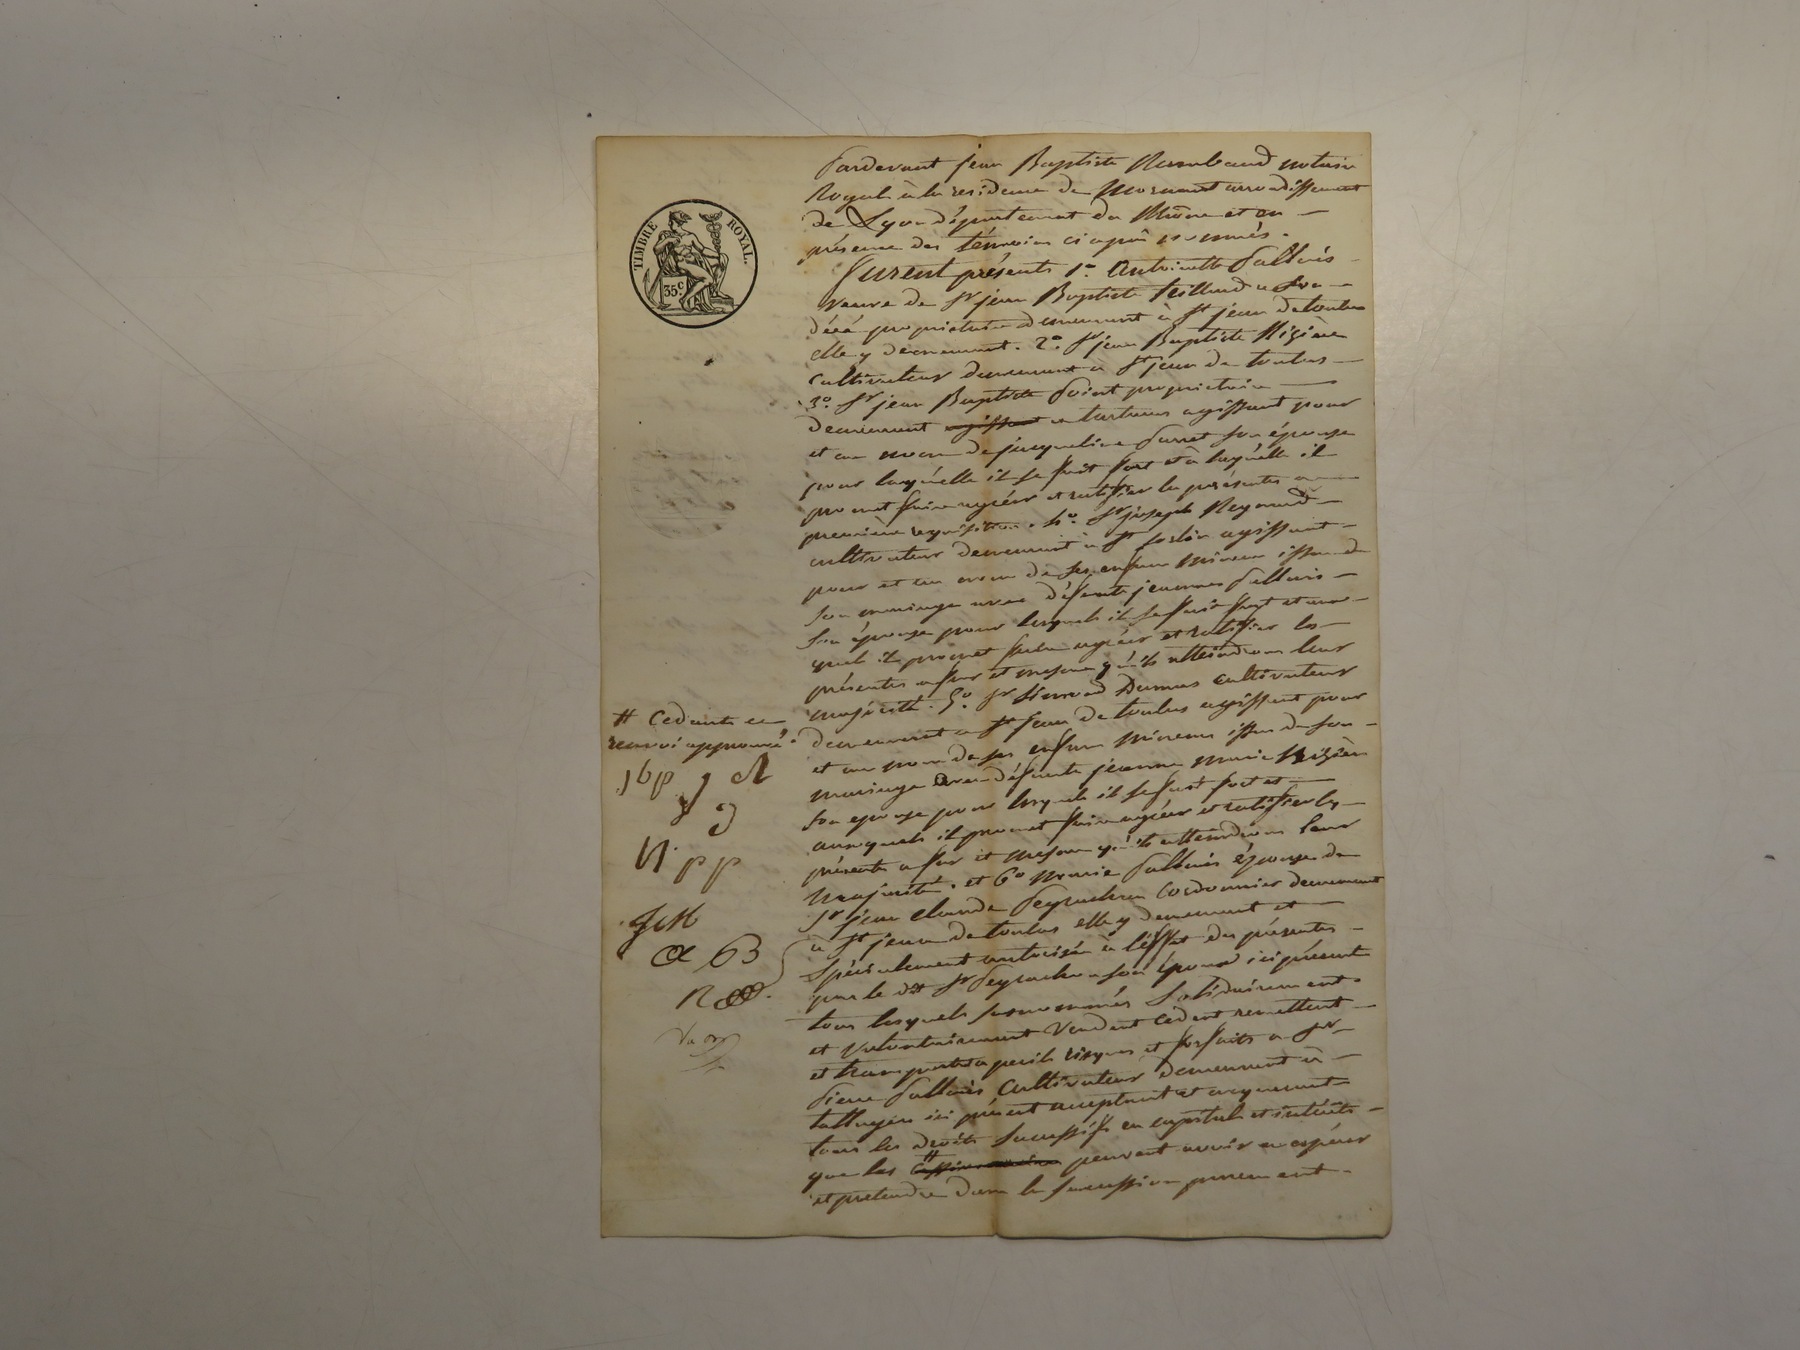 TIMBRE ROYAL.
35c
Pardevant jean Baptiste Rambaud notaire
Royal à la residence de Mornant arrondissement
de Lyon département du Rhône et en
présence des témoins ciaprès nommés.
Furent présents 1° Antoinette Pallais
veuve de Sr jean Baptiste
décédé propriétaire demeurant à St jean de toulas
elle y demeurant. 2° Sr jean Baptiste
cultivateur demeurant à St jean de toulas
3° Sr jean Baptiste Point propriétaire
demeurant agissant a tartaras agissant pour
et au nom de jacqueline son épouse
pour laquélle il se fait fort et à laquélle il
promet faire agréer et ratifier les présentes a
première requisition. 4° Sr joseph Reynaud
cultivateur demeurant à St agissant
pour et au nom de ses enfans Mineurs issus de
son mariage avec défunte jeanne Pallais
son épouse pour lesquels il se fait fort et aux
quels il promet faire agréer et ratifier les
présentes a fur et mesure qu'ils atteindrons leur
majorité. 5° Sr Dumas cultivateur
demeurant a St jean de toulas agissant pour
et au nom de ses enfans Mineurs issus de son
mariage avec défunte jeanne Marie
son epouse pour lesquels il se fait fort et
auxquels il promet faire agréer et ratifier les
présentes a fur et mesure qu'ils atteindrons leur
Majorité. et 6° Marie Pallais épouse de
Sr jean Claude Peyrachon Cordonnier demeurant
à St jean de toulas elle y demeurant et
spécialement autorisée à l'éffet des présentes
par le dit Sr Peyrachon son époux ici présent
tous lesquels susnommés Solidairement
et volontairement Vendent cèdent remettent
et transportent a périls risques et forfaits a Sr
Pierre Pallais Cultivateur demeurant à
talluyers ici présent acceptant et acquerant
tous les droits successifs en capital et intérêts
que les # peuvent avoir ou espérer
et prétendre dans la Succession purement
# Cedants ce
renvoi approuvé.